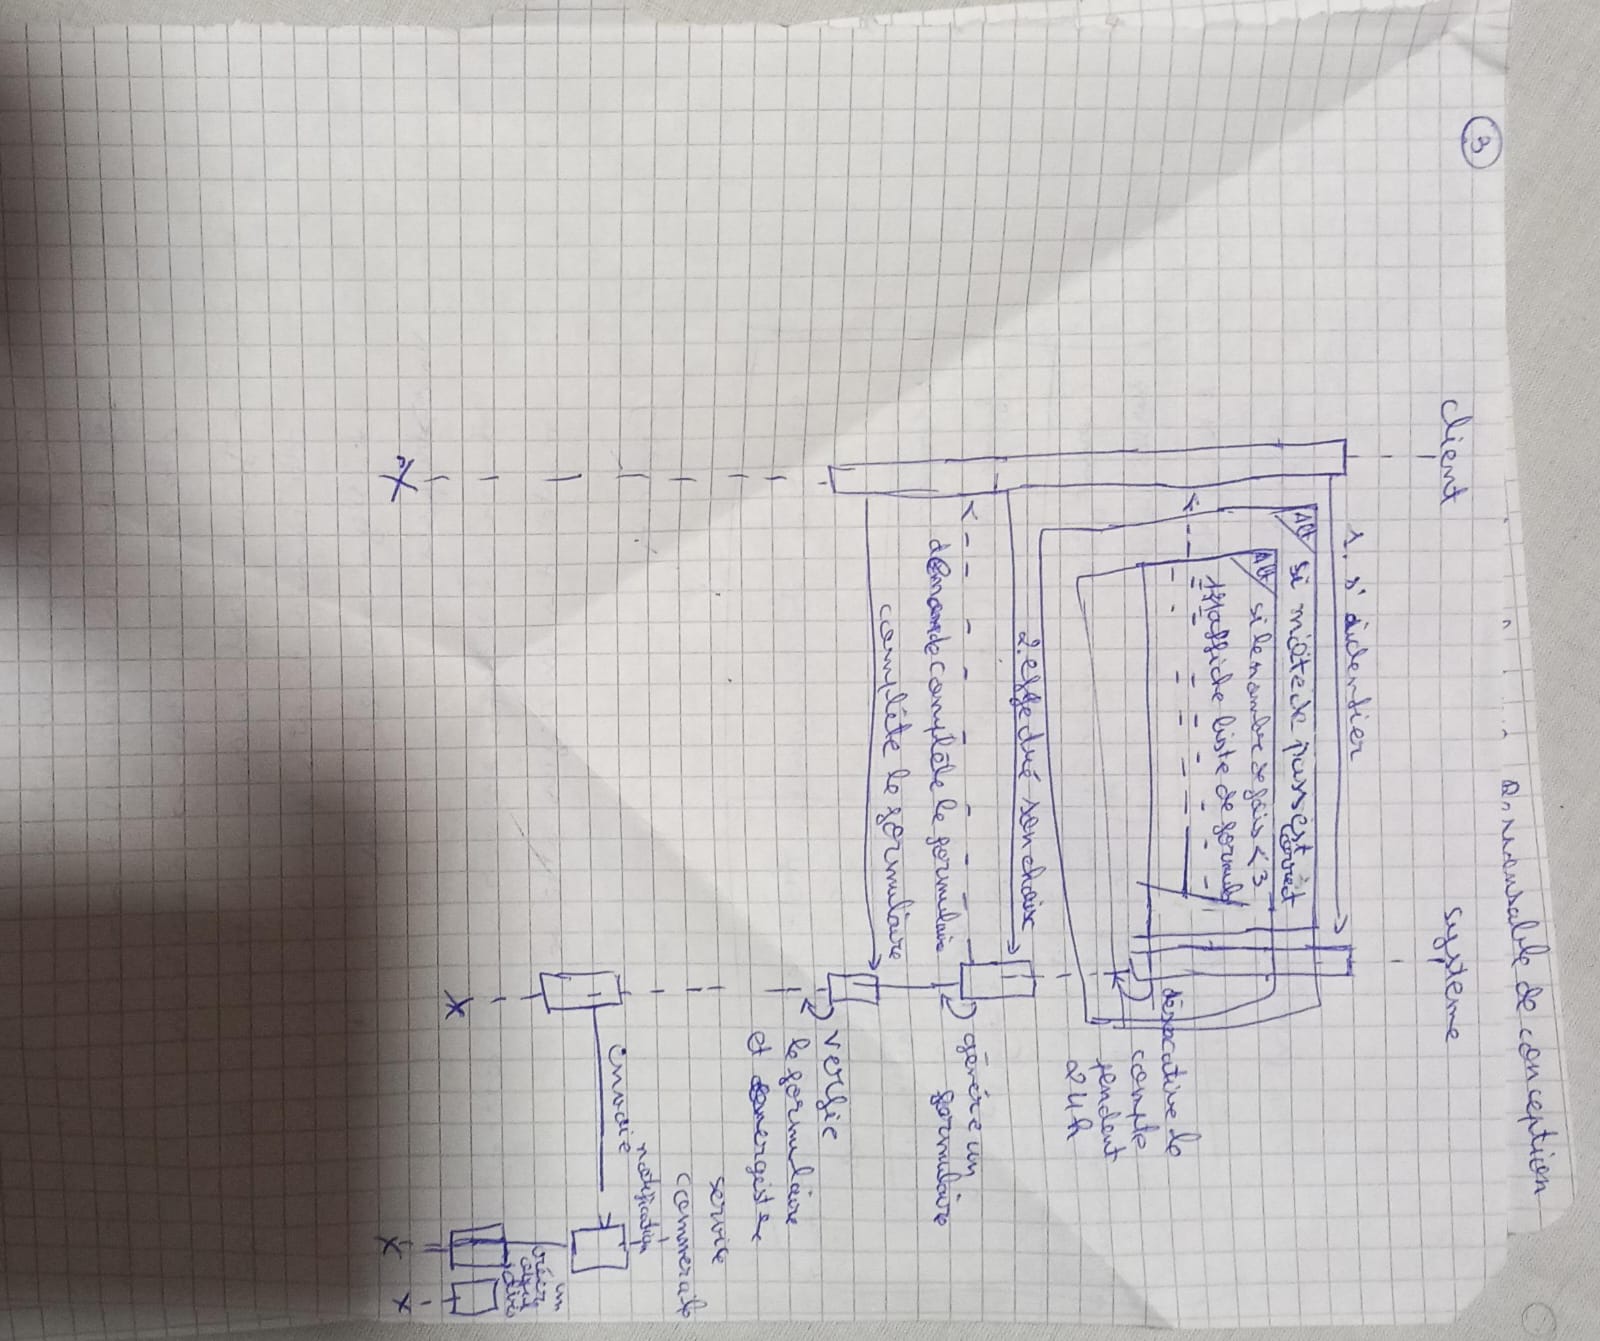 3
Responsable de conception
client
système
1. s'identifier
Alt
si môt de passe est
correct
Alt
si le nombre de fois < 3
affiche liste de formule
désactive le
compte
pendent
24h
2. effectué son choix
génére un
formulaire
demande complète le formulaire
complète le formulaire
vérfie
le formulaire
et enregistre
service
commerciale
notification
envoie
un
créer
objet